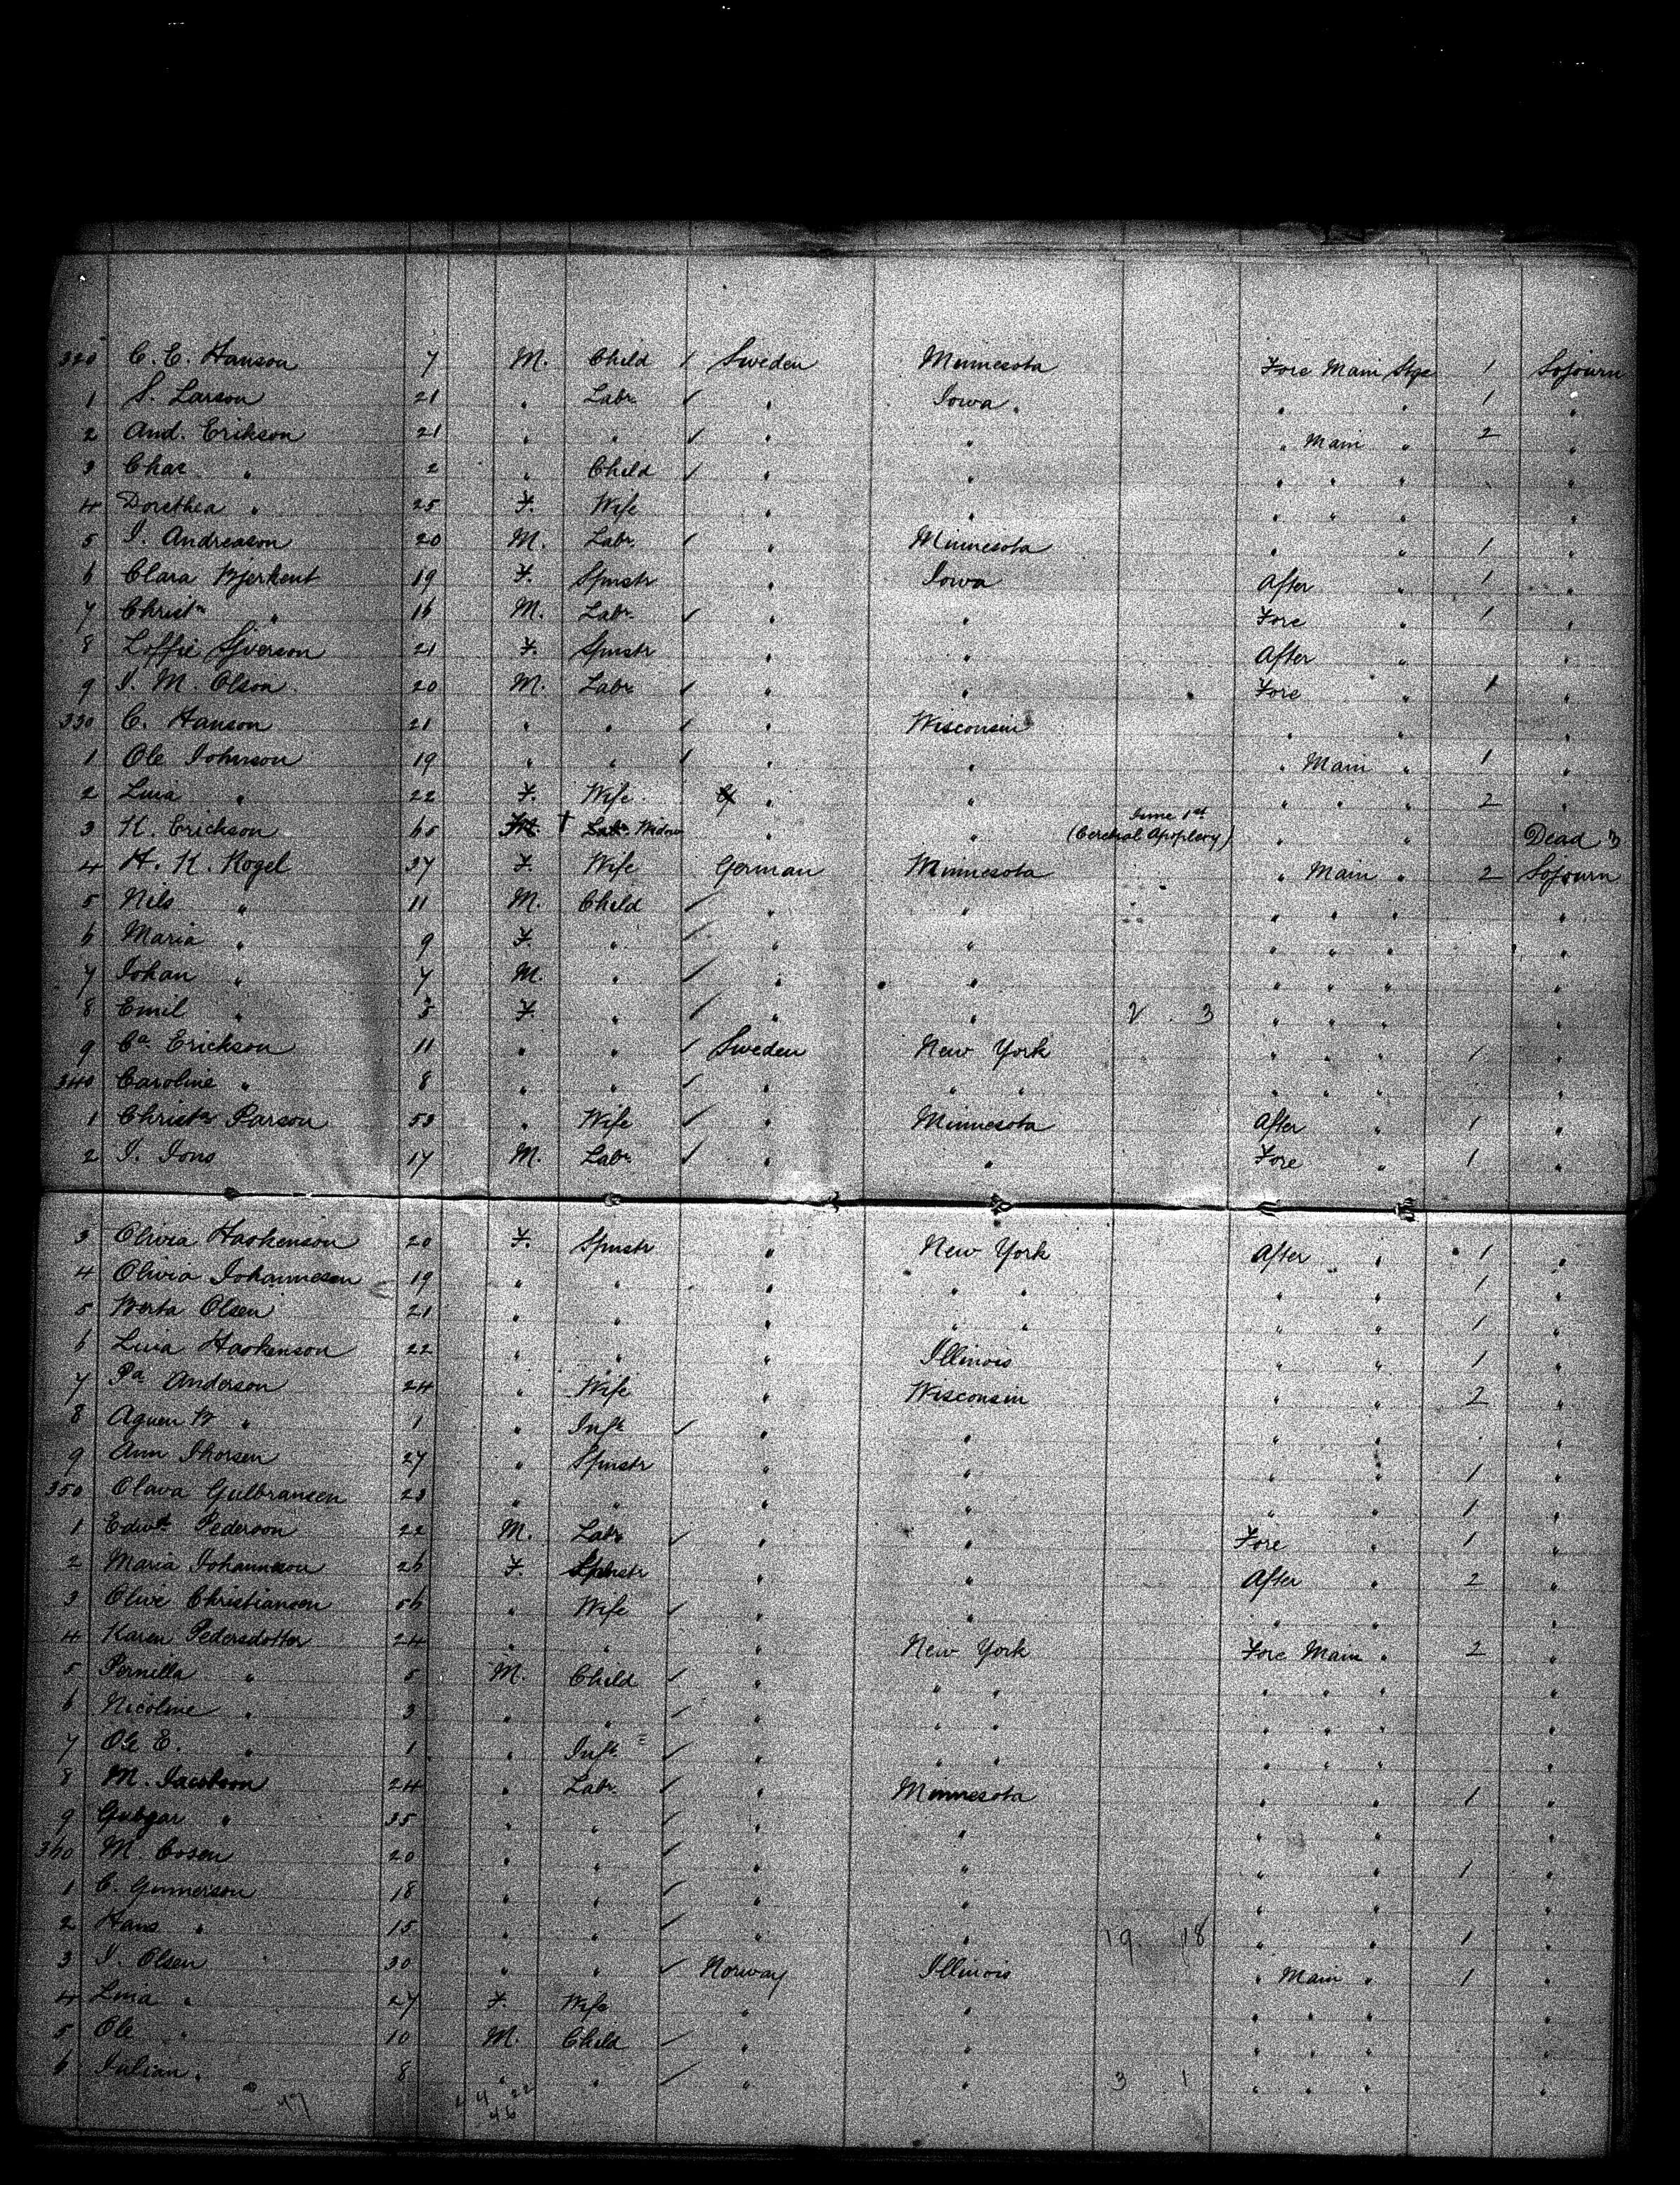 320 C. E. Hanson 7 M. Child / Sweden Minnesota Fore Main Stge 1 Sojourn
1 S. Larson 21 " Labr ✓ " Iowa " " 1 "
2 And. Erikson 21 " " ✓ " " " Main " 2 "
3 Chas " 2 " Child ✓ " " " " " "
4 Dorethea " 25 F. Wife " " " " " "
5 I. Andreason 20 M. Labr. ✓ " Minnesota " " 1 "
6 Clara Bjerkent 19 F. Spinstr " Iowa After " 1 "
7 Christn " 16 M. Labr. ✓ " " Fore " 1 "
8 Loffie Siverson 21 F. Spinstr " " After " "
9 I. M. Olson 20 M. Labr ✓ " " Fore " 1 "
330 C. Hanson 21 " " ✓ " Wisconsin " " "
1 Ole Johnson 19 " " ✓ " " " Main " 1 "
2 Lina " 22 F. Wife " " " " " 2 "
3 K. Erickson 65 † Widow " " June 1st (Cerebral Apoplexy) " " Dead 3
4 H. K. Kogel 37 F. Wife German Minnesota " Main " 2 Sojourn
5 Nils " 11 M. Child ✓ " " " " " "
6 Maria " 9 F. " ✓ " " " " " "
7 Johan " 7 M. " ✓ " " " " " "
8 Emil " 5 F. " ✓ " " 2 3 " " " "
9 Ca Erickson 11 " " ✓ Sweden New York " " " 1 "
340 Caroline " 8 " " ✓ " " " " " " "
1 Christn Parson 53 " Wife ✓ " Minnesota After " 1 "
2 I. Jons 17 M. Labr. ✓ " " Fore " 1 "
3 Olivia Haakenson 20 F. Spinstr " New York After " 1 "
4 Olivia Johannesen 19 " " " " " " " 1 "
5 Berta Olsen 21 " " " " " " " 1 "
6 Lina Haakenson 22 " " " Illinois " " 1 "
7 Pa Anderson 24 " Wife " Wisconsin " " 2 "
8 Agnen B " 1 " Inft ✓ " " " " "
9 Ann Thorsen 27 " Spinstr " " " " 1 "
350 Olava Gulbransen 23 " " " " " " 1 "
1 Edwd Pederson 22 M. Labr ✓ " " Fore " 1 "
2 Maria Johanneson 26 F. Spinstr " " After " 2 "
3 Olive Christiansen 56 " Wife ✓ " " " " "
4 Karen Pedersdotter 24 " " " New York Fore Main " 2 "
5 Pernilla " 5 M. Child ✓ " " " " " " "
6 Nicoline " 3 " " ✓ " " " " " " "
7 Ole E. " 1 " Inft ✓ " " " " " " "
8 M. Jacobson 24 " Labr. ✓ " Minnesota " " 1 "
9 " 35 " " ✓ " " " " "
360 M. Cosen 20 " " ✓ " " " " 1 "
1 C. Gunnerson 18 " " ✓ " " " " "
2 Hans " 15 " " ✓ " " 19 18 " " 1 "
3 I. Olsen 30 " " ✓ Norway Illinois " Main " 1 "
4 Lina " 27 F. Wife " " " " " "
5 Ole " 10 M. Child ✓ " " " " " "
6 Julian " 8 " " ✓ " " 3 1 " " " "
47 44 22
46